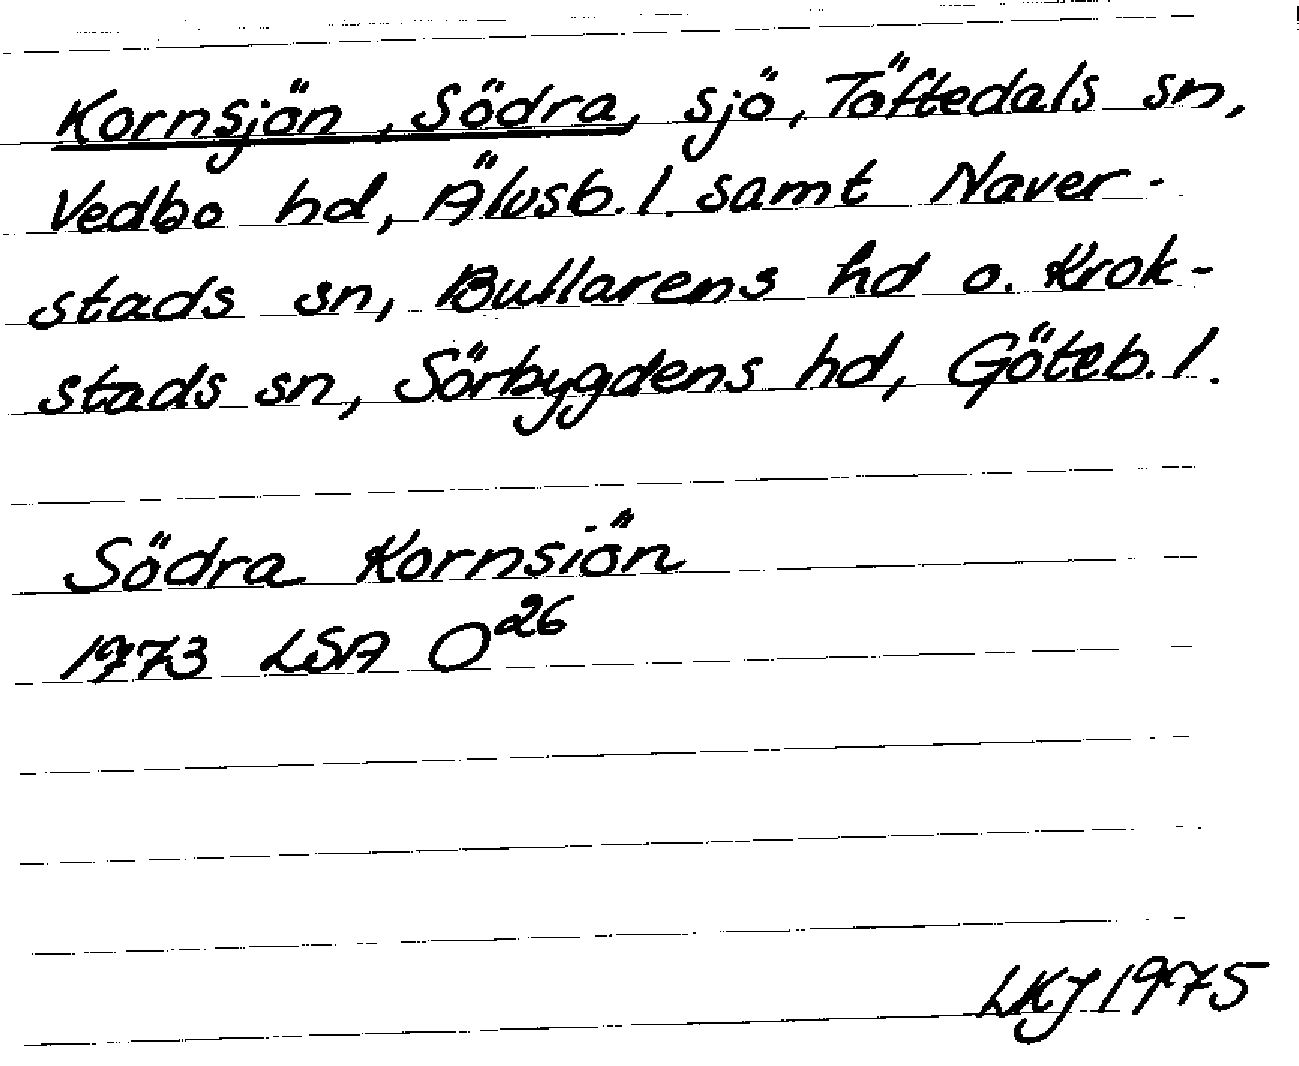 Kornsjön, Södra, sjö, Töftedals sn,
Vedbo hd, Älvsb. l. samt Naver-
stads sn, Bullarens hd o. Krok-
stads sn, Sörbygdens hd, Göteb. l.
Södra Kornsiön
1973 LSA O26
LKJ 1975